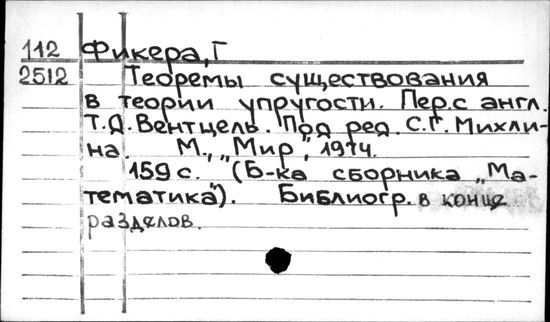 112 Фикера, Г
2512 Теоремы существования
в теории упругости. Пер. с англ.
Т.Д. Вентцель. Под ред. С.Г. Михли-
на. М., „Мир", 1974.
159 с. (Б-ка сборника „Ма-
тематика"). Библиогр. в конце
разделов.